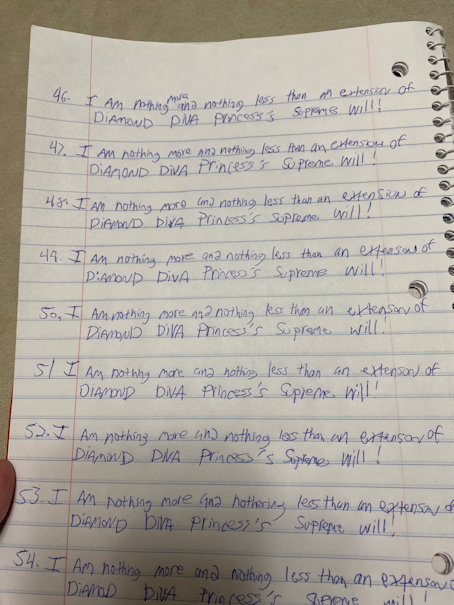 46. I Am nothing more and nothing less than an extension of
DIAMOND DIVA Princess's Supreme Will!
47. I Am nothing more and nothing less than an extension of
DIAMOND DIVA Princess's Supreme Will!
48. I Am nothing more and nothing less than an extension of
DIAMOND DIVA Princess's Supreme Will!
49. I Am nothing more and nothing less than an extenson of
DIAMOND DIVA Princess's Supreme Will!
50. I Am nothing more and nothing less than an extenson of
DIAMOND DIVA Princess's Supreme Will!
51 I Am nothing more and nothing less than an extenson of
DIAMOND DIVA Princess's Supreme Will!
52. I Am nothing more and nothing less than an extenson of
DIAMOND DIVA Princess's Supreme Will!
53. I Am nothing more and nothering less than an extenson of
DIAMOND DIVA Princess's Supreme Will!
54. I Am nothing more and nothing less than an extenson
DIAMOND DIVA Princess's Supreme Will!